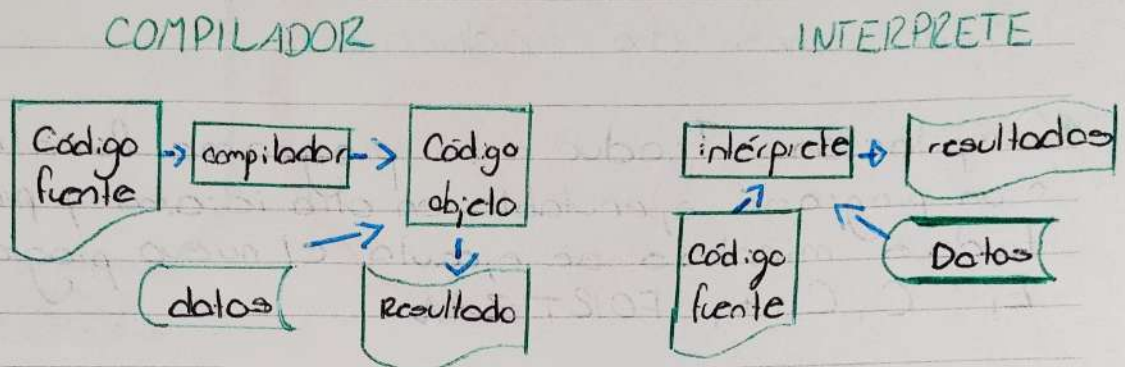 COMPILADOR
INTERPRETE
Código
fuente
compilador
Código
objeto
datos
Resultado
intérprete
resultados
Código
fuente
Datos